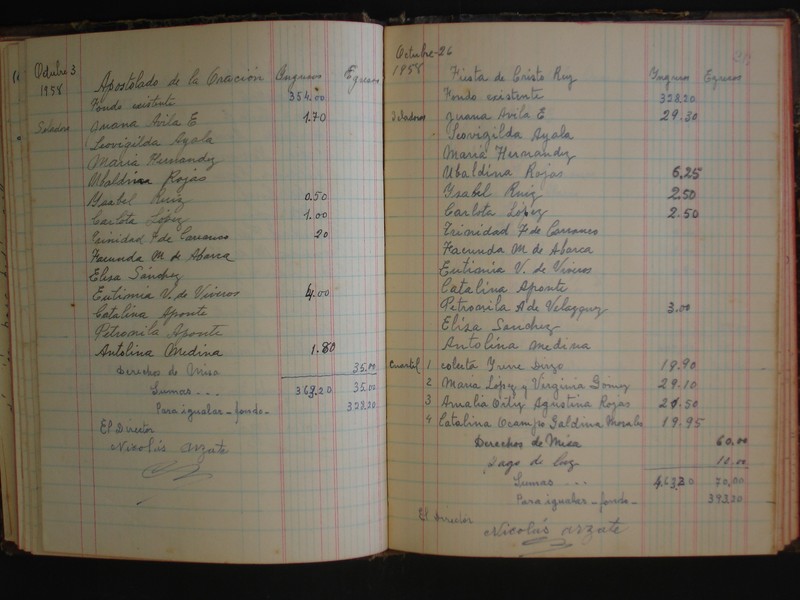 Octubre 3 1958 Apostolado de la Oración Ingresos Egresos
Fondo existente 354.00
Celadoras Juana Avila E 1.70
Leovigilda Ayala
María Hernandez
Ubaldina Rojas
Ysabel Ruiz 0.50
Carlota López 1.00
Trinidad F. de Carranco 20
Facunda M de Abarca
Elisa Sánchez
Eutimia V. de Viveros 4.00
Catalina Aponte
Petromila Aponte
Antolina Medina 1.80
Derechos de Misa 35.00
Sumas - - - 363.20 35.00
Para igualar - fondo - 328.20
El Director
Nicolás Arzate
Octubre - 26 1958 Fiesta de Cristo Rey Ingresos Egresos
Fondo existente 328.20
Celadoras Juana Avila E 29.30
Leovigilda Ayala
María Hernandez
Ubaldina Rojas 6.25
Ysabel Ruiz 2.50
Carlota López 2.50
Trinidad F. de Carranco
Facunda M de Abarca
Eutimia V. de Viveros
Catalina Aponte
Petromila A de Velazquez 3.00
Elisa Sanchez
Antolina Medina
Cuartel 1 Colecta Yrene Dirzo 19.90
2 María López y Virginia Gómez 29.10
3 Amalia Ortiz Agustina Rojas 21.50
4 Catalina Ocampo Galdina Morales 19.95
Derechos de Misa 60.00
Pago de luz 10.00
Sumas - - - 463.20 70.00
Para igualar - fondo - 393.20
El Director
Nicolás Arzate